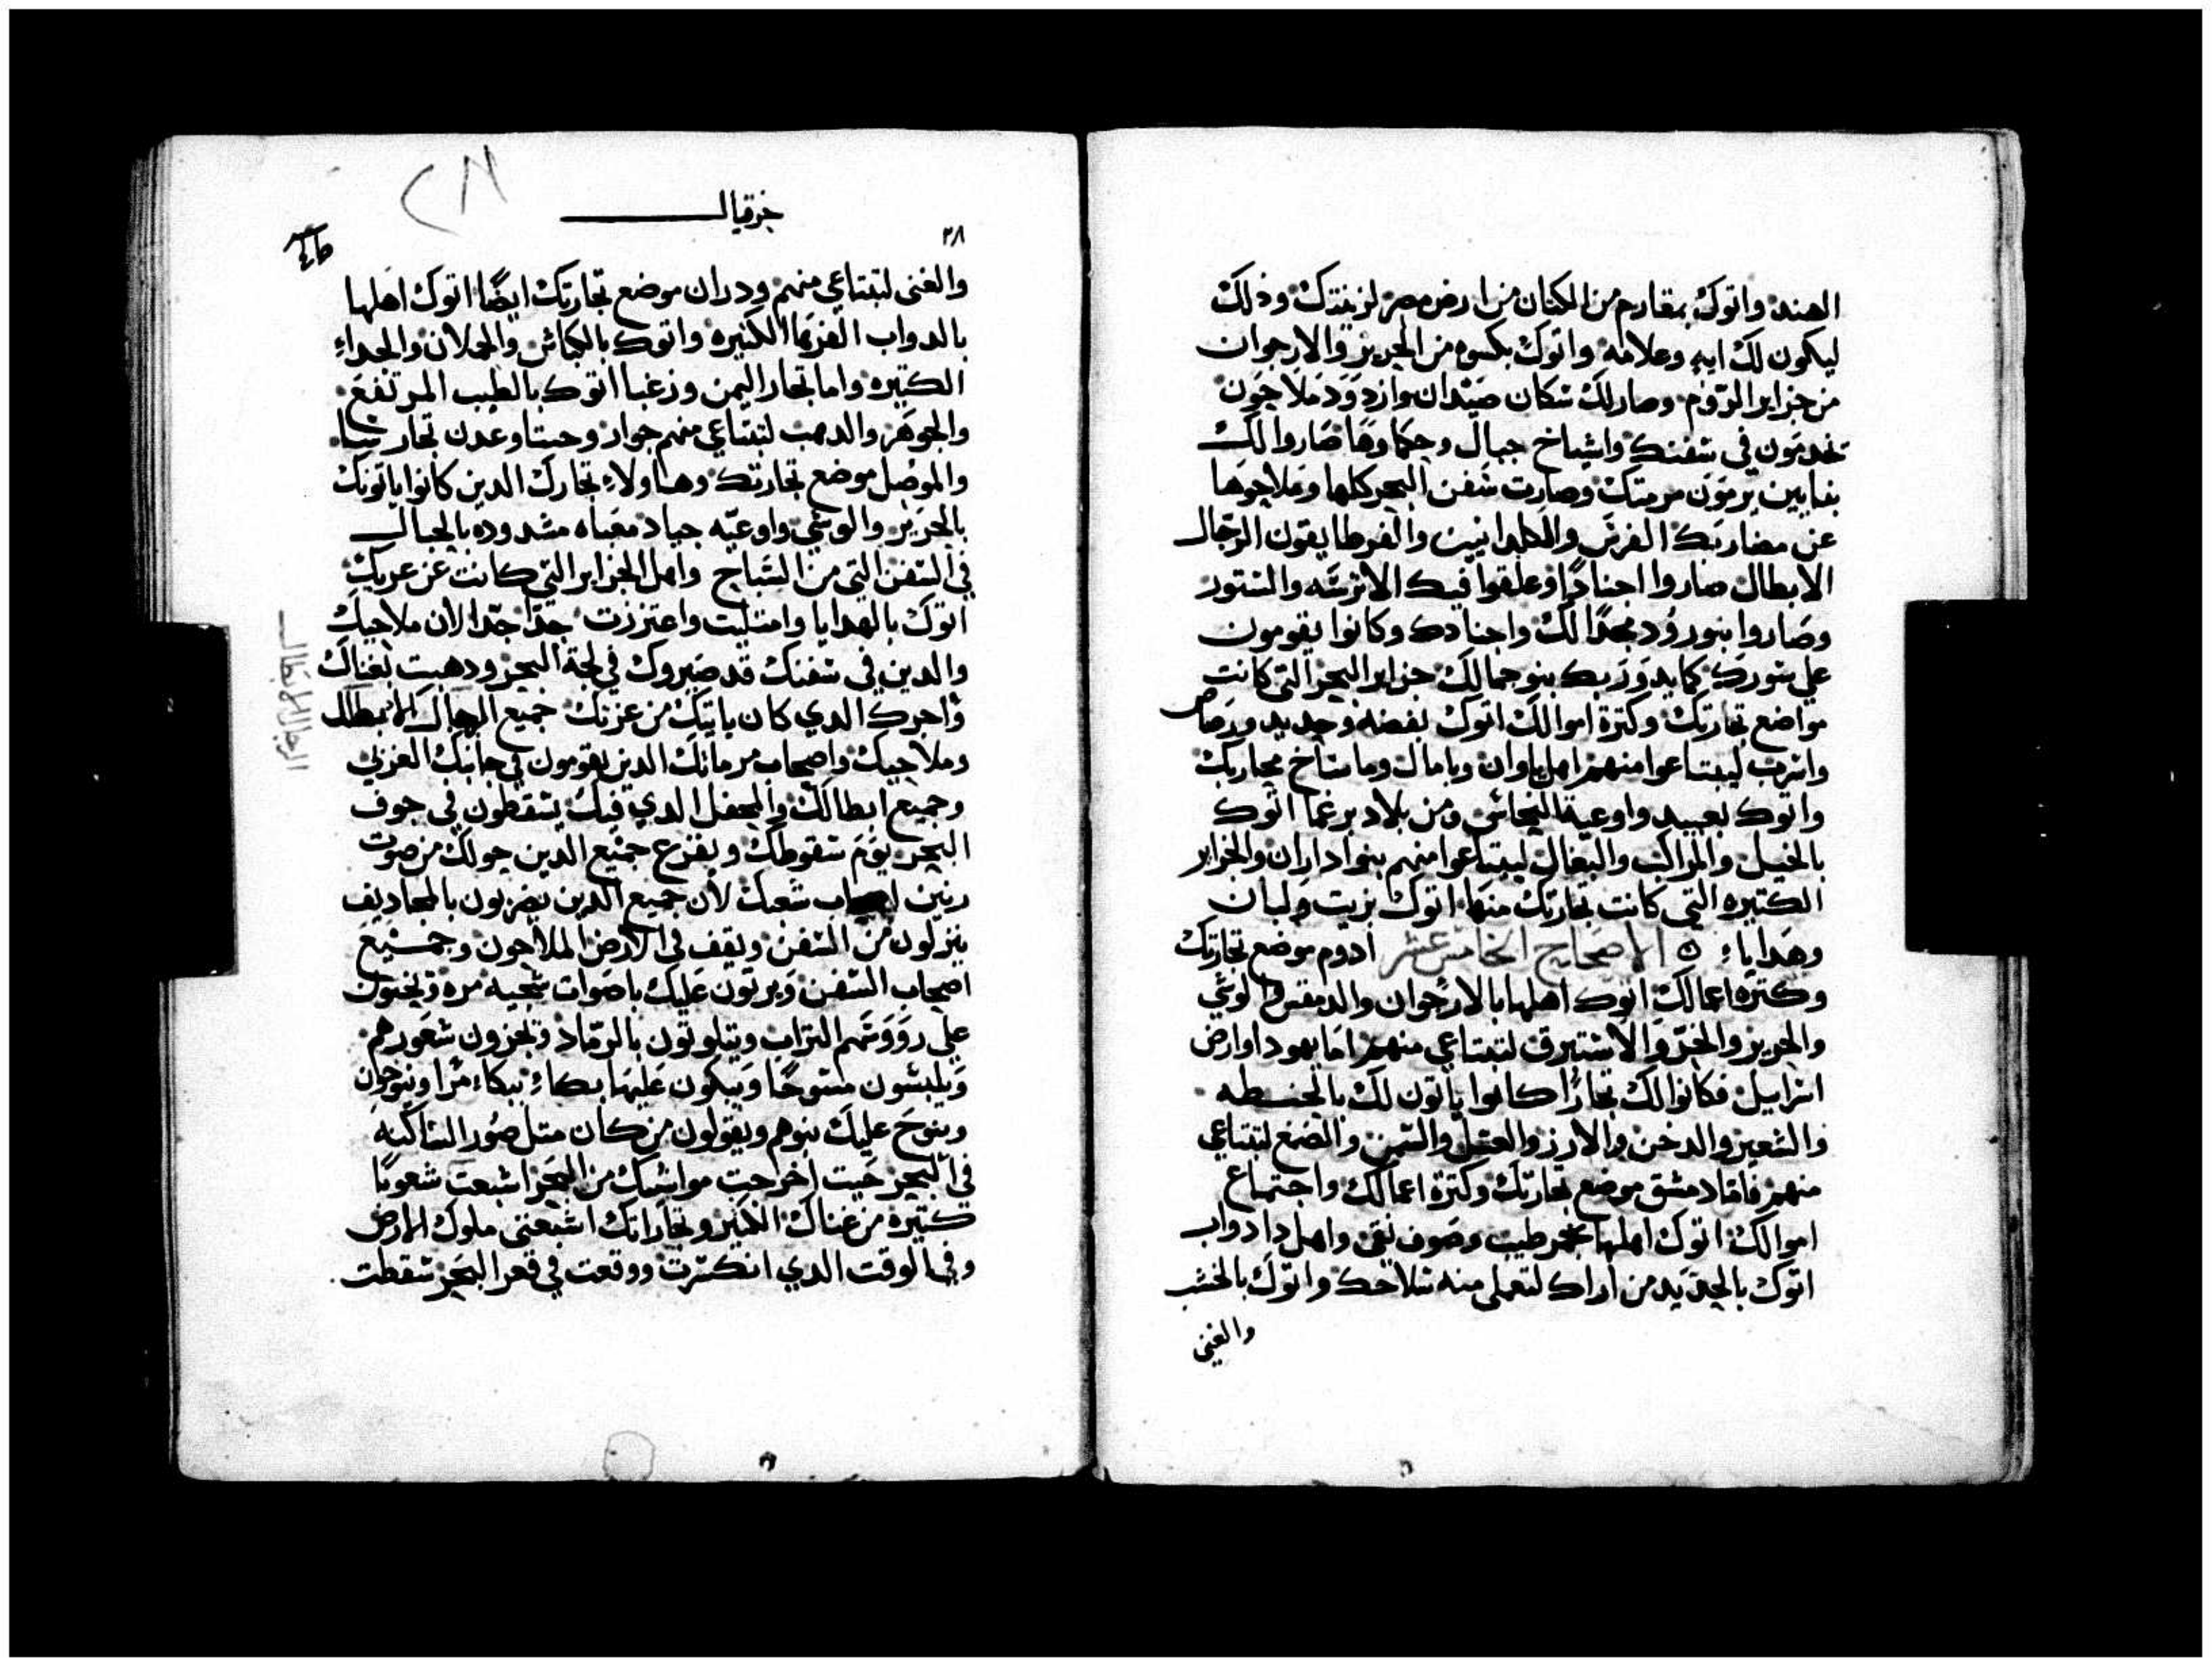 الهند واتوك بمقارم من الكتان من ارض مصر لزينتك وذلك
ليكون لك ايه وعلامه واتوك بكسوه من الحرير والارجوان
من جزاير الروم وصار لك سكان صيدان وازود ملاحون
يخدمون في سفنك واشياخ جبال وحكماوها صاروا لك
يرمون مرمتك وصارت سفن البحر كلها وملاحوها
الفرس والقوطا يقون الرجال
الابطال صاروا اجنادا وعلقوا فيك الاترسه والستور
وصاروا بنورود مجدا لك واجنادك وكانوا يقومون
علي سورك بنوحمالك جزاير البحر التي كانت
مواضع تجارتك وكترة اموالك اتوك بفضه وحديد ورصاص
ليبتاعوا منهم اهل ياوان
واتوك بعبيد واوعية النحاس ومن بلاد برغما اتوك
بالخيل والمراكب والبغال ليبتاعوا منهم بنوا داران والجزاير
الكتيره التي كانت تجارتك منها اتوك بزيت ولبان
وهدايا ه الاصحاح الخامس عشر ادوم موضع تجارتك
وكتره اعمالك اتوك اهلها بالارجوان والوشي
والحرير والخز والاستبرق لتبتاعي منهم اما يهودا وارض
اسراييل فكانوا لك تجارا كانوا ياتون لك بالحنطه
والشعير والدخن والارز والعسل والسمن والصمغ لتبتاعي
منهم فاما دمشق موضع تجارتك وكترة اعمالك واجتماع
اموالك اتوك اهلها بخمر طيب وصوف نقي واهل دادواب
اتوك بالحديد من اراك لتعملي منه سلاحك واتوك بالخشب
والغنى
حزقيال
٢٨
والغنى لتبتاعي منهم ودران موضع تجارتك ايضا اتوك اهلها
بالدواب الكتيره واتوك بالكباش والحملان والجداء
الكتيره واما تجار اليمن ورغما اتوك بالطيب المرتفع
والجوهر والدهب لتبتاعي منهم جوار وحبتا وعدن تجار
والموصل موضع تجارتك وهاولاء تجارك الدين كانوا ياتونك
بالحرير والوشي واوعيه جياد معباه مشدوده بالحبال
في السفن التي من الساج واهل الجزاير التي كانت
اتوك بالهدايا وامتليت واعتززت جدا جدا لان ملاحيك
والدين في سفنك قد صيروك في لجة البحر ودهبت بغناك
واجرك الدي كان ياتيك من عزتك جميع الرجال الابطال
وملاحيك واصحاب مرماتك الدين يقومون في
وجميع ابطالك والمحفل الدي فيك يسقطون في جوف
البحر يوم سقوطك ويفزع جميع الدين حولك من صوت
رنين اصحاب سعيك لان جميع الدين يضربون بالمجاديف
ينزلون من السفن ويقف في الارض الملاحون وجميع
اصحاب السفن ويرتون عليك باصوات شجيه مره ويحتون
علي رووسهم التراب ويتلوتون بالرماد ويجزون شعورهم
ويلبسون مسوحا ويبكون عليها بكاء ببكاء مرا وينوحون
وينوح عليك بنوهم ويقولون من كان متل صور الساكنه
في البحر حيت اخرجت مواشيك من البحر اشبعت شعوبا
كتيره من غناك الكتير وتجاراتك اشبعتي ملوك الارض
وفي الوقت الدي انكسرت ووقعت في قعر البحر سقطت
الرجال الابطال